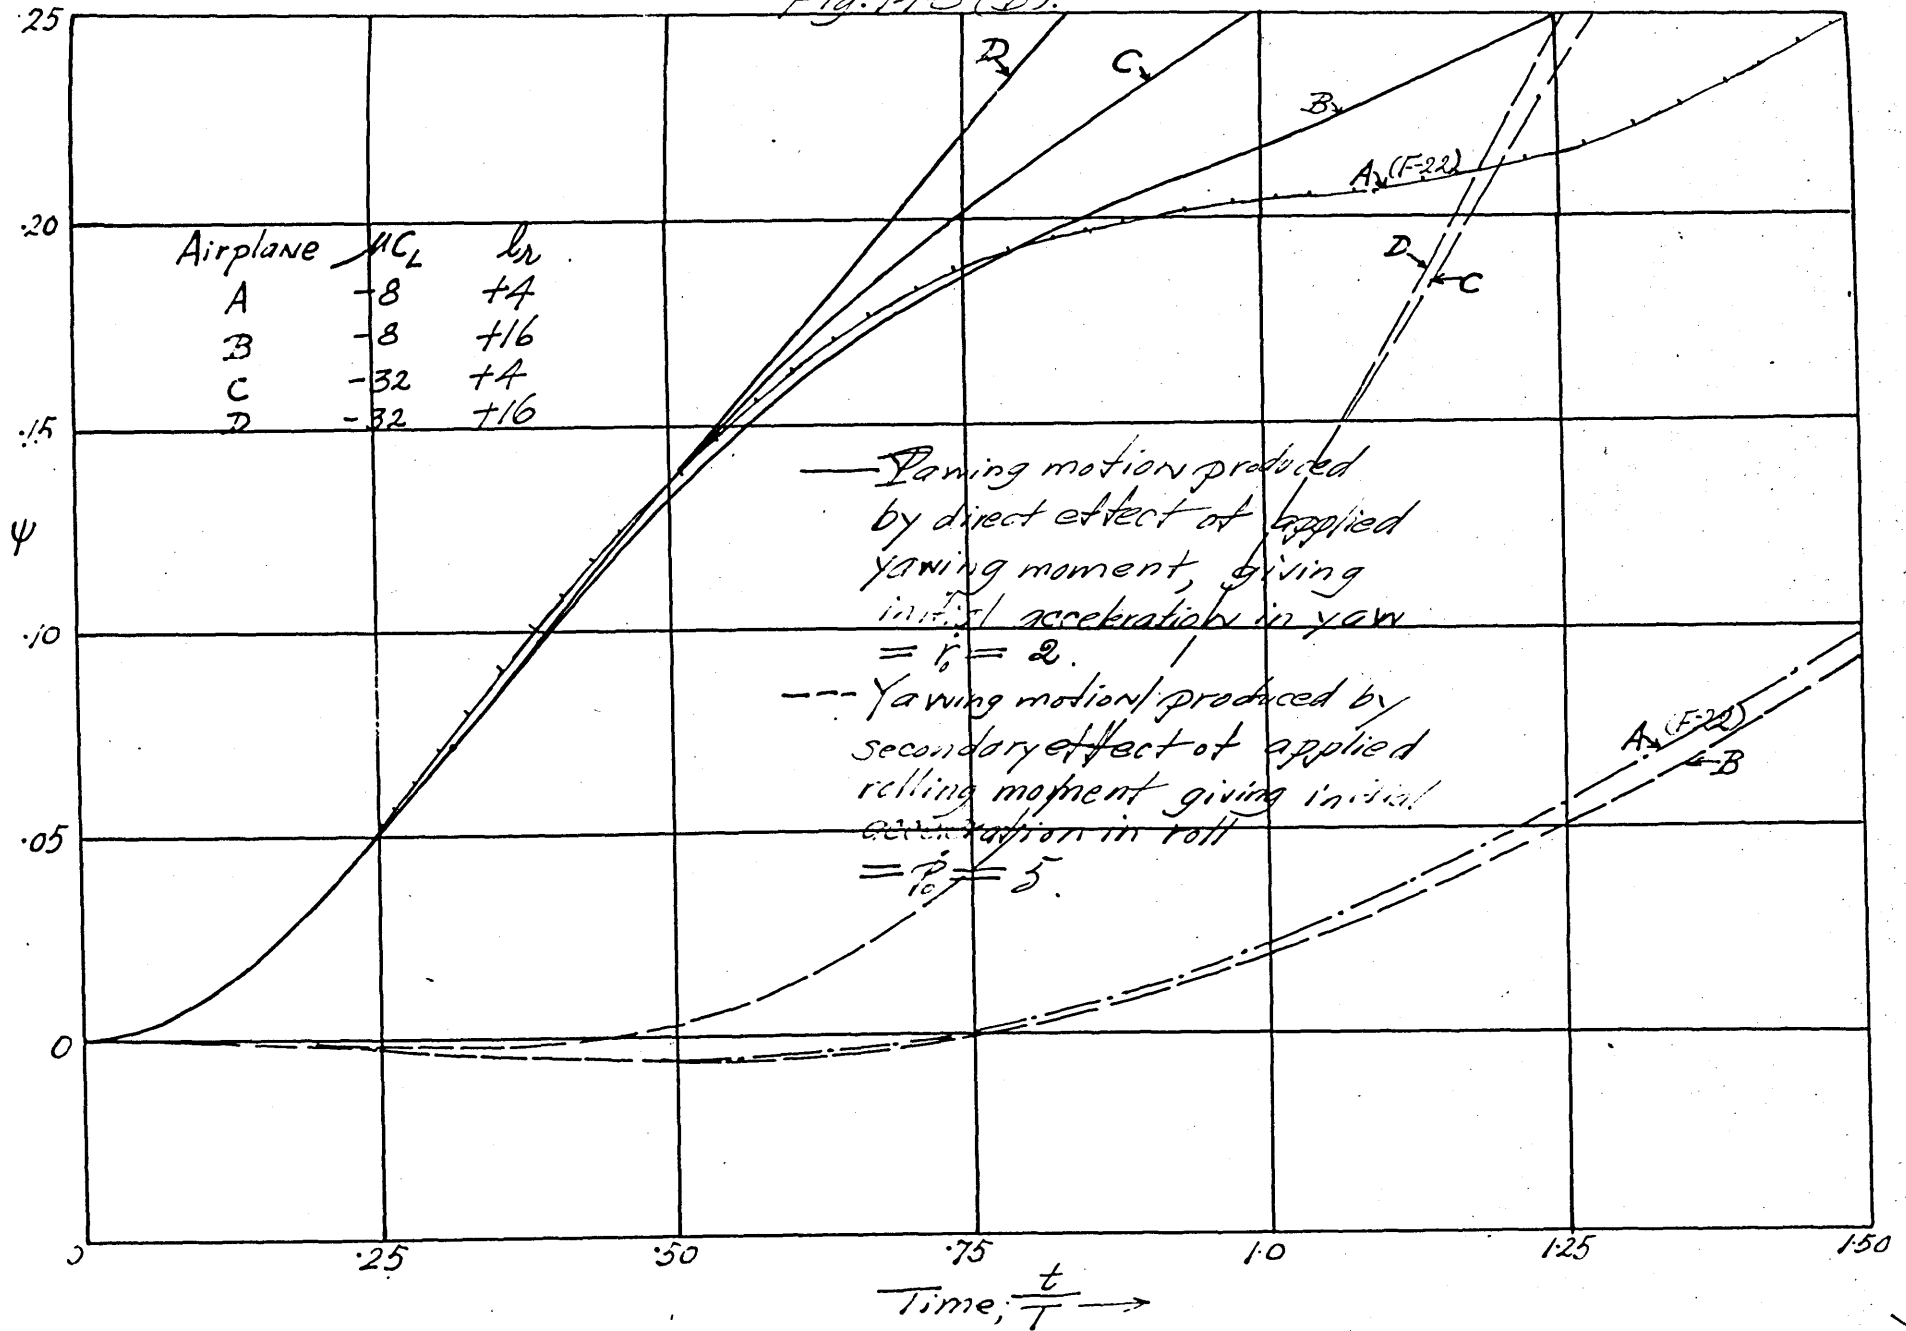 .25
D
C
B
A (F-22)
.20
Airplane μC_L l_r
A -8 +4
B -8 +16
C -32 +4
D -32 +16
D
C
.15
Yawing motion produced
by direct effect of applied
yawing moment, giving
initial acceleration in yaw
= ṙ₀ = 2.
ψ
.10
Yawing motion produced by
secondary effect of applied
rolling moment giving initial
acceleration in roll
= ṗ₀ = 5.
A (F-22)
B
.05
0
0 .25 .50 .75 1.0 1.25 1.50
Time; t/T →